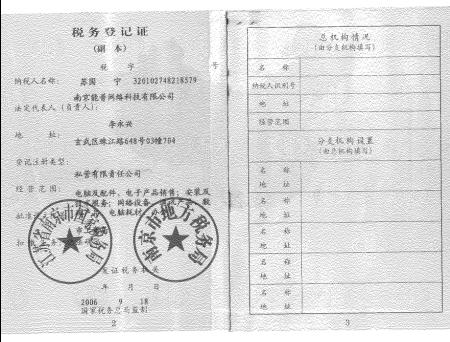 税务登记证
(副 本)
税 字 号
苏国 宁 320102748218579
纳税人名称:
南京能普网络科技有限公司
法定代表人(负责人):
李永兴
地 址:
玄武区珠江路648号03幢704
登记注册类型:
私营有限责任公司
经营范围:
电脑及配件、电子产品销售;安装及
服务;网络设备
电脑耗材
江苏省南京市国家税务局
南京市地方税务局
发证税务机关
年 月 日
2006 9 18
国家税务总局监制
2
总机构情况
(由分支机构填写)
名 称
纳税人识别号
地 址
经营范围
分支机构设置
(由总机构填写)
名 称
地 址
名 称
地 址
名 称
地 址
名 称
地 址
名 称
地 址
3